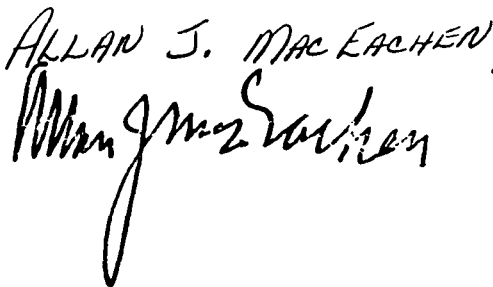 ALLAN J. MACEACHEN
Allan J MacEachen